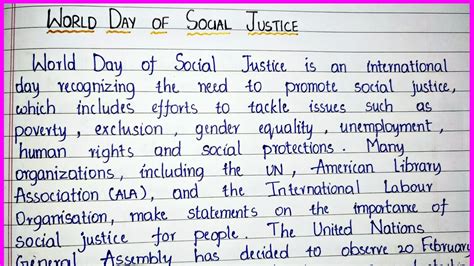 WORLD DAY OF SOCIAL JUSTICE
World Day of Social Justice is an International
day recognizing the need to promote social justice,
which includes efforts to tackle issues such as
poverty, exclusion, gender equality, unemployment,
human rights and social protections. Many
organizations, including the UN, American Library
Association (ALA), and the International Labour
Organisation, make statements on the importance of
social justice for people. The United Nations
General Assembly has decided to observe 20 February